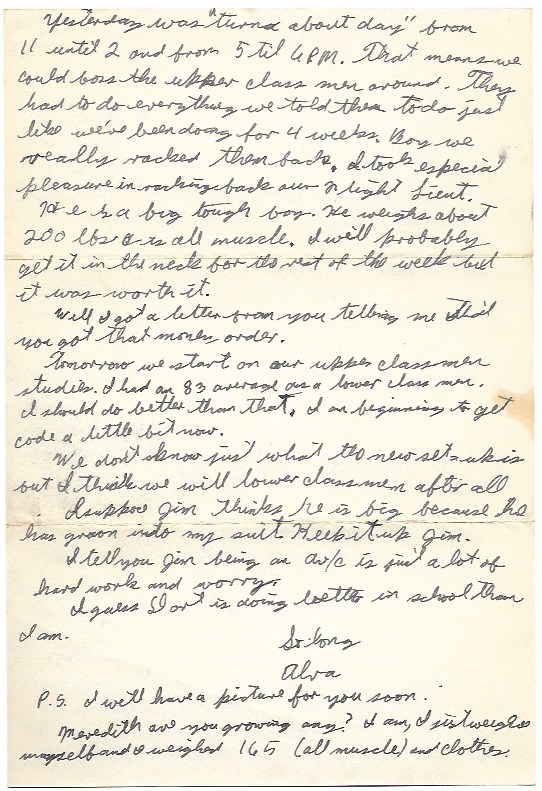 Yesterday was "turn about day" from
11 until 2 and from 5 til 6 P.M. That means we
could boss the upper class men around. They
had to do everything we told them to do just
like we've been doing for 4 weeks. Boy we
really racked them back. I took especial
pleasure in racking back our Flight Lieut.
He is a big tough boy. He weighs about
200 lbs & is all muscle. I will probably
get it in the neck for the rest of the week but
it was worth it.
Well I got a letter from you telling me that
you got that money order.
Tomorrow we start on our upper classmen
studies. I had an 83 average as a lower class men.
I should do better than that. I am beginning to get
code a little bit now.
We don't know just what the new set-up is
but I think we will lower classmen after all
I suppose Jim thinks he is big because he
has grown into my suit. Keep it up Jim.
I tell you Jim being an av/c is just a lot of
hard work and worry.
I guess is doing better in school than
I am.
So long
Alva
P.S. I will have a picture for you soon.
Meredith are you growing any? I am, I just weighed
myself and I weighed 165 (all muscle) and clothes.